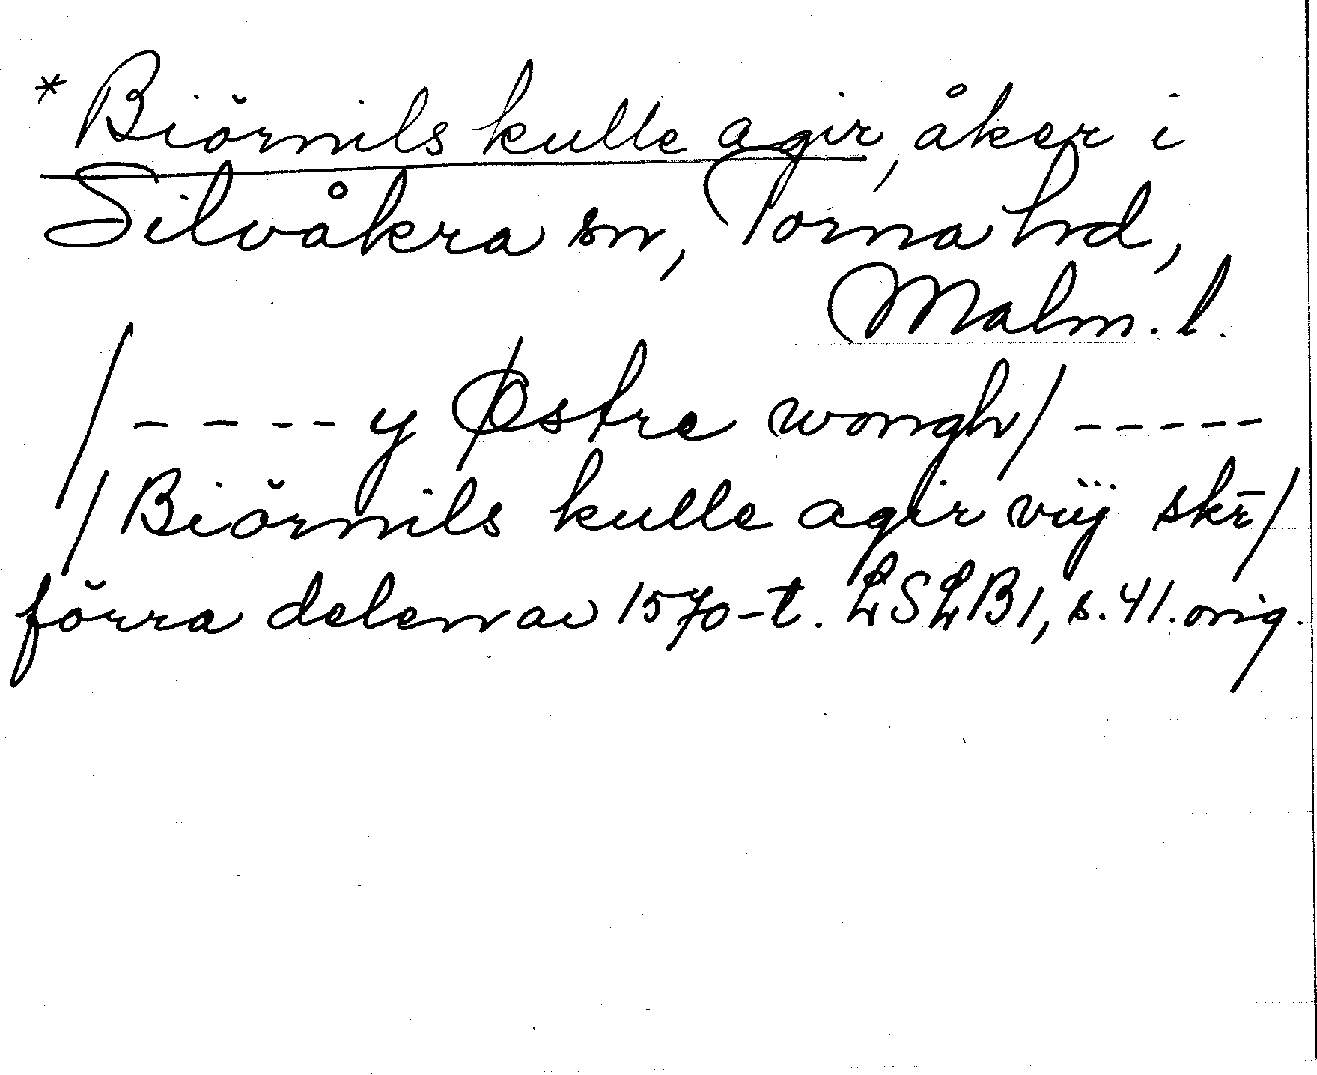 * Biörnils kulle agir, åker i
Silvåkra sn, Torna hd,
Malm. l.
/ - - - - y Østre wongh / - - - - -
/ Biörnils kulle agir viij skr̄ /
förra delen av 1570-t. LSLB1, s. 41. orig.